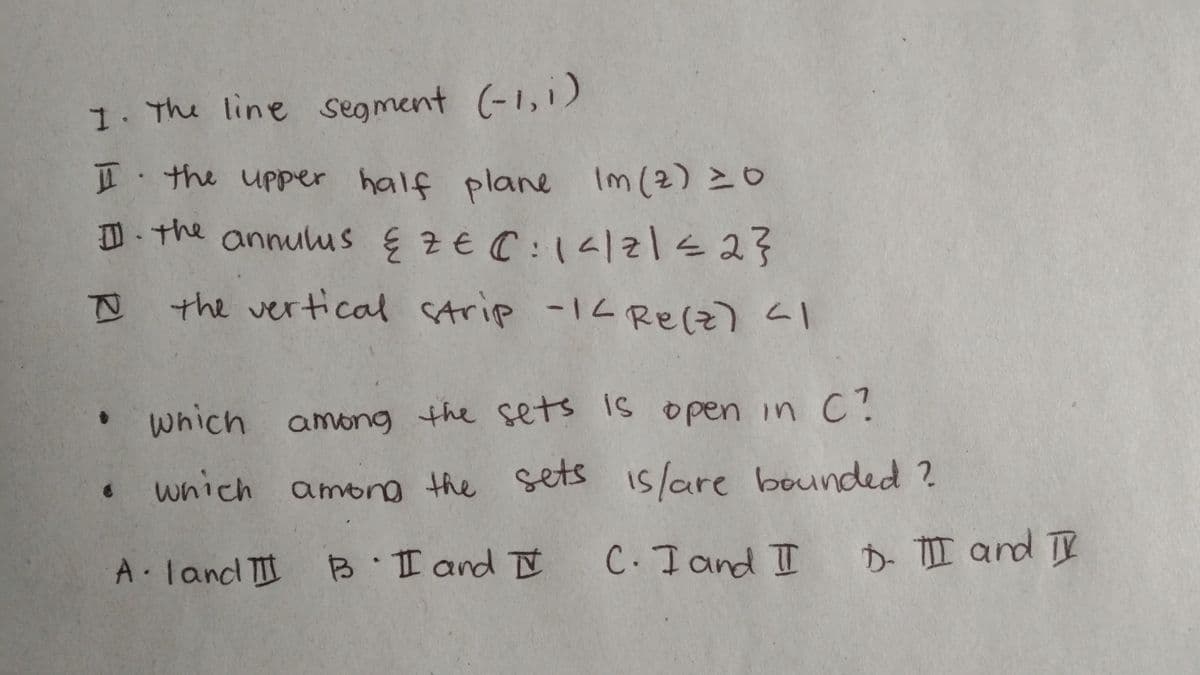 I. The line segment (-1, i)
II. the upper half plane Im(z) ≥ 0
III. the annulus { z ∈ ℂ : 1 < |z| ≤ 2}
IV the vertical strip -1 < Re(z) < 1
• which among the sets is open in C?
• which among the sets is/are bounded ?
A. I and III B. II and IV C. I and II D. III and IV